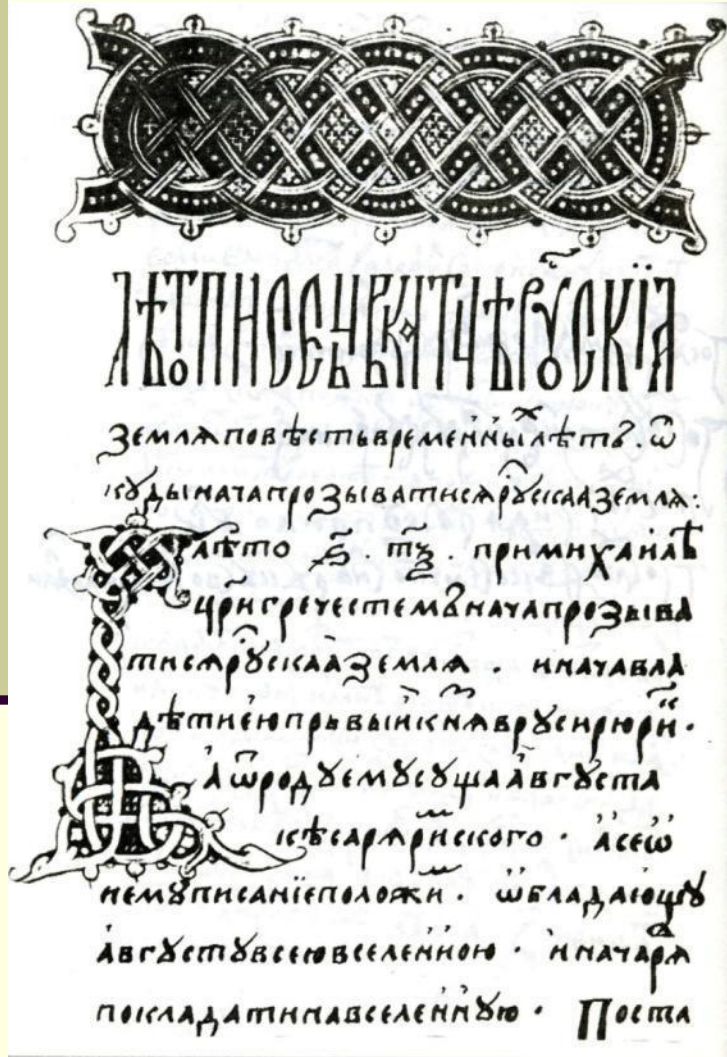 лѣтописець вкратцѣ рꙋ́скїѧ
землѧ повѣсть временныⷯ лѣтъ. ѿ
кꙋды нача прозыватисѧ рꙋскаа землѧ:
лѣто ҂ѕ҃. тѯ҃. при михаилѣ
ц҃ри гречестемъ нача прозыва
тисѧ рꙋскаа землѧ. и нача вла
дѣти ею прьвый кн҃ѧⷥ в рꙋси рюриⷦ.
а ѿ родꙋ емꙋ сꙋща августа
кѣсарѧ риⷨского. а се ѡ
немꙋ писанїе положиⷨ. ѡбладающꙋ
августꙋ всею вселенною. и нача рѧⷣ
покладати на вселеннꙋю. Поста